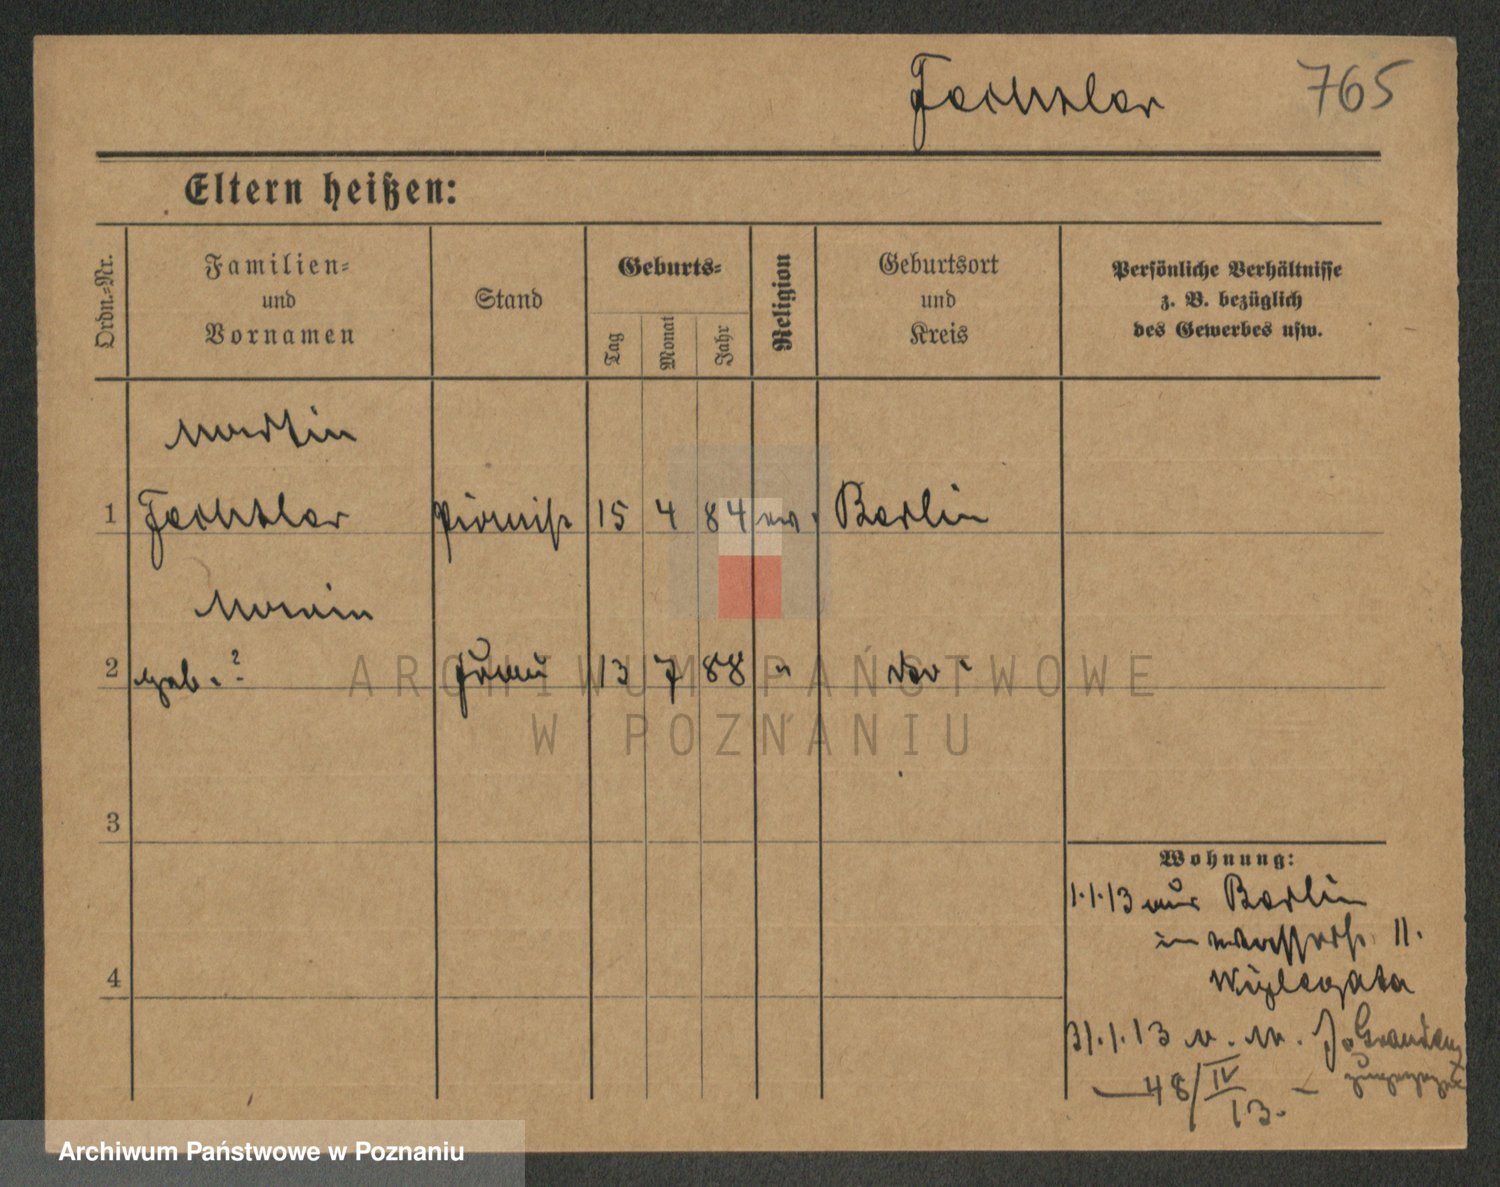 Fechtler 765
Eltern heißen:
Ordn.=Nr.
Familien=
und
Vornamen
Stand
Geburts=
Tag
Monat
Jahr
Religion
Geburtsort
und
Kreis
Persönliche Verhältnisse
z. B. bezüglich
des Gewerbes usw.
Martin
1 Fechtler 15 4 84 ev. Berlin
2 geb. ? 13 7 88 "
ARCHIWUM PAŃSTWOWE
W POZNANIU
3
Wohnung:
1.1.13 aus Berlin
in 11.
4
31.1.13 Graudenz
48/IV
13.
Archiwum Państwowe w Poznaniu